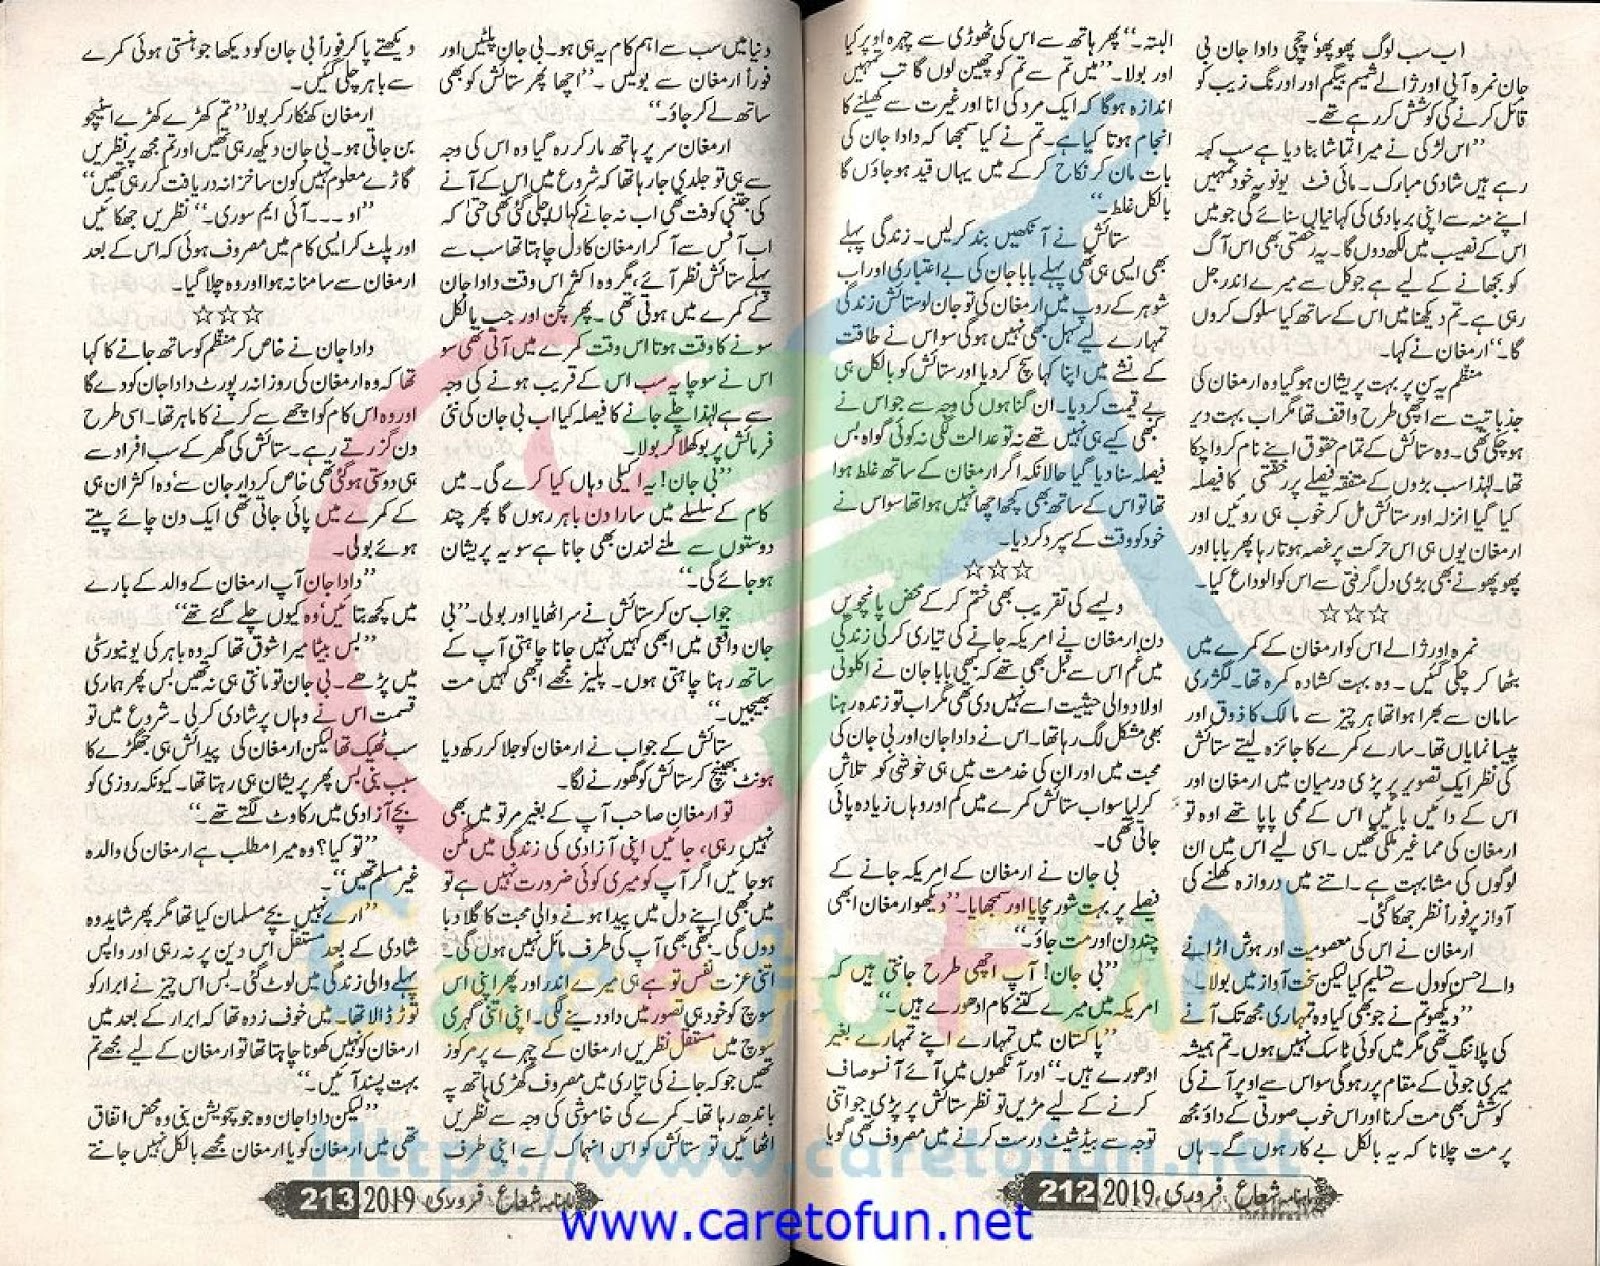 اب سب لوگ پھوپھو، چچی دادا جان بی
جان نمرہ آپی اور ژالے شمیم بیگم اور اورنگ زیب کو
قائل کرنے کی کوشش کر رہے تھے۔
”اس لڑکی نے میرا تماشا بنا دیا ہے سب کہہ
رہے ہیں شادی مبارک۔ مائی فٹ یونو یہ خود تمہیں
اپنے منہ سے اپنی بربادی کی کہانیاں سنائے گی جو میں
اس کے نصیب میں لکھ دوں گا۔ یہ رخصتی بھی اس آگ
کو بجھانے کے لیے ہے جو کل سے میرے اندر جل
رہی ہے۔ تم دیکھنا میں اس کے ساتھ کیا سلوک کروں
گا۔“ ارمغان نے کہا۔
منظم یہ سن پر بہت پریشان ہو گیا وہ ارمغان کی
جذباتیت سے اچھی طرح واقف تھا مگر اب بہت دیر
ہو چکی تھی۔ وہ ستائش کے تمام حقوق اپنے نام کروا چکا
تھا۔ لہٰذا سب بڑوں کے متفقہ فیصلے پر رخصتی کا فیصلہ
کیا گیا انزلہ اور ستائش مل کر خوب ہی روئیں اور
ارمغان یوں ہی اس حرکت پر غصہ ہوتا رہا پھر بابا اور
پھوپھو نے بھی بڑی دل گرفتی سے اس کو الوداع کیا۔
☆☆☆
نمرہ اور ژالے اس کو ارمغان کے کمرے میں
بٹھا کر چلی گئیں۔ وہ بہت کشادہ کمرہ تھا۔ لگژری
سامان سے بھرا ہوا تھا ہر چیز سے مالک کا ذوق اور
پیسا نمایاں تھا۔ سارے کمرے کا جائزہ لیتے ستائش
کی نظر ایک تصویر پر پڑی درمیان میں ارمغان اور
اس کے دائیں بائیں اس کے ممی پاپا تھے اوہ تو
ارمغان کی مما غیر ملکی تھیں۔ اسی لیے اس میں ان
لوگوں کی مشابہت ہے۔ اتنے میں دروازہ کھلنے کی
آواز پر فوراً نظر جھکا گئی۔
ارمغان نے اس کی معصومیت اور ہوش اڑانے
والے حسن کو دل سے تسلیم کیا لیکن سخت آواز میں بولا۔
”دیکھو تم نے جو بھی کیا وہ تمہاری مجھ تک آنے
کی پلاننگ تھی مگر میں کوئی ٹاسک نہیں ہوں۔ تم ہمیشہ
میری جوتی کے مقام پر رہو گی سو اس سے اوپر آنے کی
کوشش بھی مت کرنا اور اس خوب صورتی کے داؤ مجھ
پر مت چلانا کہ یہ بالکل بے کار ہوں گے۔ ہاں
البتہ۔“ پھر ہاتھ سے اس کی ٹھوڑی سے چہرہ اوپر کیا
اور بولا۔ ”میں تم سے تم کو چھین لوں گا تب تمہیں
اندازہ ہو گا کہ ایک مرد کی انا اور غیرت سے کھیلنے کا
انجام ہوتا کیا ہے۔ تم نے کیا سمجھا کہ دادا جان کی
بات مان کر نکاح کر کے میں یہاں قید ہو جاؤں گا
بالکل غلط۔“
ستائش نے آنکھیں بند کر لیں۔ زندگی پہلے
بھی ایسی ہی تھی پہلے بابا جان کی بے اعتباری اور اب
شوہر کے روپ میں ارمغان کی تو جان لو ستائش زندگی
تمہارے لیے سہل کبھی نہیں ہو گی سو اس نے طاقت
کے نشے میں اپنا کہا سچ کر دیا اور ستائش کو بالکل ہی
بے قیمت کر دیا۔ ان گناہوں کی وجہ سے جو اس نے
کبھی کیے ہی نہیں تھے نہ تو عدالت لگی نہ کوئی گواہ بس
فیصلہ سنا دیا گیا حالانکہ اگر ارمغان کے ساتھ غلط ہوا
تھا تو اس کے ساتھ بھی کچھ اچھا نہیں ہوا تھا سو اس نے
خود کو وقت کے سپرد کر دیا۔
☆☆☆
ولیمے کی تقریب بھی ختم کر کے محض پانچویں
دن ارمغان نے امریکہ جانے کی تیاری کر لی زندگی
میں غم اس سے قبل بھی تھے کہ کبھی بابا جان نے اکلوتی
اولاد والی حیثیت اسے نہیں دی تھی مگر اب تو زندہ رہنا
بھی مشکل لگ رہا تھا۔ اس نے دادا جان اور بی جان کی
محبت میں اور ان کی خدمت میں ہی خوشی کو تلاش
کر لیا سو اب ستائش کمرے میں کم اور وہاں زیادہ پائی
جاتی تھی۔
بی جان نے ارمغان کے امریکہ جانے کے
فیصلے پر بہت شور مچایا اور سمجھایا۔ ”دیکھو ارمغان ابھی
چند دن اور مت جاؤ۔“
”بی جان! آپ اچھی طرح جانتی ہیں کہ
امریکہ میں میرے کتنے کام ادھورے ہیں۔“
”پاکستان میں تمہارے اپنے تمہارے بغیر
ادھورے ہیں۔“ اور آنکھوں میں آئے آنسو صاف
کرنے کے لیے مڑیں تو نظر ستائش پر پڑی جو اتنی
توجہ سے بیڈ شیٹ درست کرنے میں مصروف تھی گویا
ماہنامہ شعاع فروری 2019 212
دنیا میں سب سے اہم کام یہ ہی ہو۔ بی جان پلٹیں اور
فوراً ارمغان سے بولیں۔ ”اچھا پھر ستائش کو بھی
ساتھ لے کر جاؤ۔“
ارمغان سر پر ہاتھ مار کر رہ گیا وہ اس کی وجہ
سے ہی تو جلدی جا رہا تھا کہ شروع میں اس کے آنے
کی جتنی کوفت تھی اب نہ جانے کہاں چلی گئی تھی حتیٰ کہ
اب آفس سے آ کر ارمغان کا دل چاہتا تھا سب سے
پہلے ستائش نظر آئے، مگر وہ اکثر اس وقت دادا جان
کے کمرے میں ہوتی تھی۔ پھر کچن اور جب بالکل
سونے کا وقت ہوتا اس وقت کمرے میں آتی تھی سو
اس نے سوچا یہ سب اس کے قریب ہونے کی وجہ
سے ہے لہٰذا چلے جانے کا فیصلہ کیا اب بی جان کی نئی
فرمائش پر بوکھلا کر بولا۔
”بی جان! یہ اکیلی وہاں کیا کرے گی۔ میں
کام کے سلسلے میں سارا دن باہر رہوں گا پھر چند
دوستوں سے ملنے لندن بھی جانا ہے سو یہ پریشان
ہو جائے گی۔“
جواب سن کر ستائش نے سر اٹھایا اور بولی۔ ”بی
جان واقعی میں ابھی کہیں نہیں جانا چاہتی آپ کے
ساتھ رہنا چاہتی ہوں۔ پلیز مجھے ابھی کہیں مت
بھیجیں۔“
ستائش کے جواب نے ارمغان کو جلا کر رکھ دیا
ہونٹ بھینچ کر ستائش کو گھورنے لگا۔
تو ارمغان صاحب آپ کے بغیر مر تو میں بھی
نہیں رہی، جائیں اپنی آزادی کی زندگی میں مگن
ہو جائیں اگر آپ کو میری کوئی ضرورت نہیں ہے تو
میں بھی اپنے دل میں پیدا ہونے والی محبت کا گلا دبا
دوں گی۔ کبھی بھی آپ کی طرف مائل نہیں ہوں گی۔
اتنی عزت نفس تو ہے ہی میرے اندر اور پھر اپنی اس
سوچ کو خود ہی تصور میں داد دینے لگی۔ اپنی اتنی گہری
سوچ میں مستقل نظریں ارمغان کے چہرے پر مرکوز
تھیں جو کہ جانے کی تیاری میں مصروف گھڑی ہاتھ پہ
باندھ رہا تھا۔ کمرے کی خاموشی کی وجہ سے نظریں
اٹھائیں تو ستائش کو اس انہماک سے اپنی طرف
دیکھتے پا کر فوراً بی جان کو دیکھا جو ہنستی ہوئی کمرے
سے باہر چلی گئیں۔
ارمغان کھنکار کر بولا ”تم کھڑے کھڑے اسٹیچو
بن جاتی ہو۔ بی جان دیکھ رہی تھیں اور تم مجھ پر نظریں
گاڑے معلوم نہیں کون سا خزانہ دریافت کر رہی تھیں“
”او۔۔۔ آئی ایم سوری۔“ نظریں جھکائیں
اور پلٹ کر ایسی کام میں مصروف ہوئی کہ اس کے بعد
ارمغان سے سامنا نہ ہوا اور وہ چلا گیا۔
☆☆☆
دادا جان نے خاص کر منظم کو ساتھ جانے کا کہا
تھا کہ وہ ارمغان کی روزانہ رپورٹ دادا جان کو دے گا
اور وہ اس کام کو اچھے سے کرنے کا ماہر تھا۔ اسی طرح
دن گزرتے رہے۔ ستائش کی گھر کے سب افراد سے
ہی دوستی ہو گئی تھی خاص کر دار جان سے وہ اکثر ان ہی
کے کمرے میں پائی جاتی تھی ایک دن چائے پیتے
ہوئے بولی۔
”دادا جان آپ ارمغان کے والد کے بارے
میں کچھ بتائیں وہ کیوں چلے گئے تھے“
”بس بیٹا میرا شوق تھا کہ وہ باہر کی یونیورسٹی
میں پڑھے۔ بی جان تو مانتی ہی نہ تھیں بس پھر ہماری
قسمت اس نے وہاں پر شادی کر لی۔ شروع میں تو
سب ٹھیک تھا لیکن ارمغان کی پیدائش ہی جھگڑے کا
سبب بنی بس پھر پریشان ہی رہتا تھا۔ کیونکہ روزی کو
بچے آزادی میں رکاوٹ لگتے تھے۔“
”تو کیا؟ وہ میرا مطلب ہے ارمغان کی والدہ
غیر مسلم تھیں“۔
”ارے نہیں بچے مسلمان کیا تھا مگر پھر شاید وہ
شادی کے بعد مستقل اس دین پر نہ رہی اور واپس
پہلے والی زندگی میں لوٹ گئی۔ بس اس چیز نے ابرار کو
توڑ ڈالا تھا۔ میں خوف زدہ تھا کہ ابرار کے بعد میں
ارمغان کو نہیں کھونا چاہتا تھا تو ارمغان کے لیے مجھے تم
بہت پسند آئیں۔“
”لیکن دادا جان وہ جو سچویشن بنی وہ محض اتفاق
تھی میں ارمغان کو یا ارمغان مجھے بالکل نہیں جانتے
ماہنامہ شعاع فروری 2019 213
CaretoFUN
Http://www.caretofun.net
www.caretofun.net